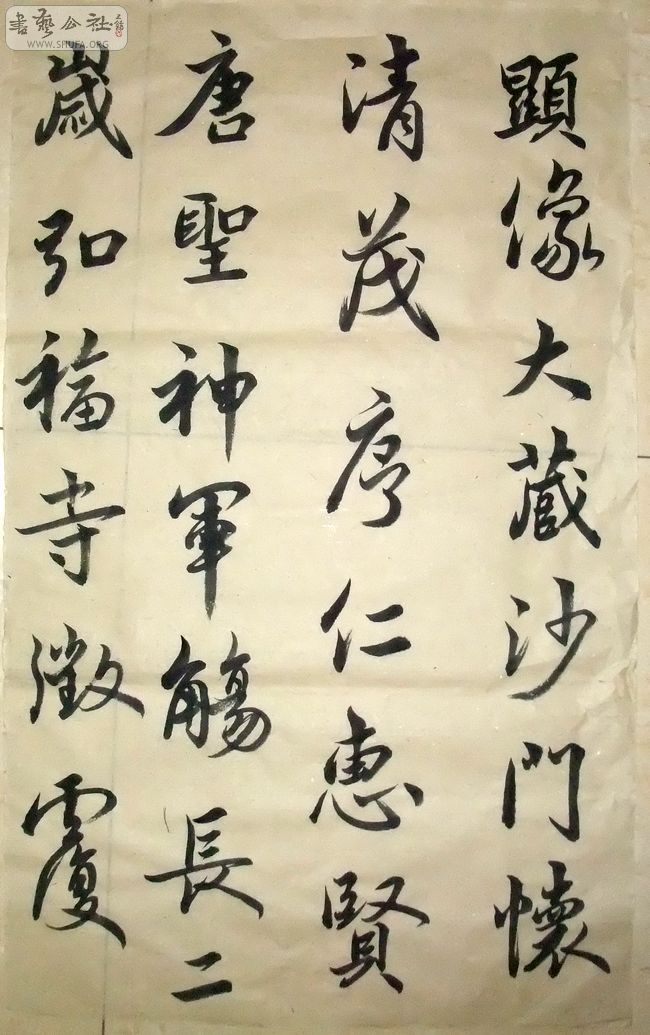 顯像大藏沙門懷
清茂序仁惠賢
唐聖神軍觴長二
歲弘福寺徵覆
書藝公社
WWW.SHUFA.ORG